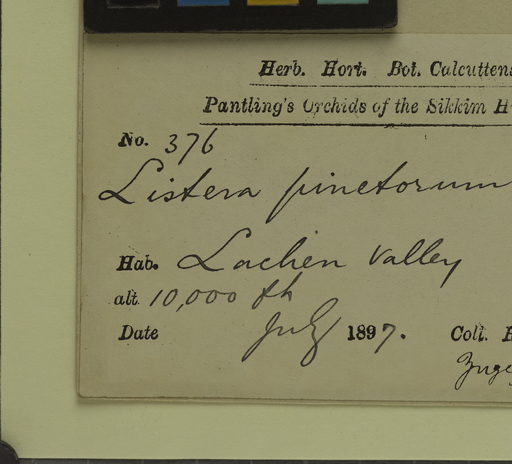 Herb. Hort. Bot. Calcuttens
Pantling's Orchids of the Sikkim H
No. 376
Listera pinetorum
Hab. Lachen Valley
alt. 10,000 ft
Date July 1897. Coll.